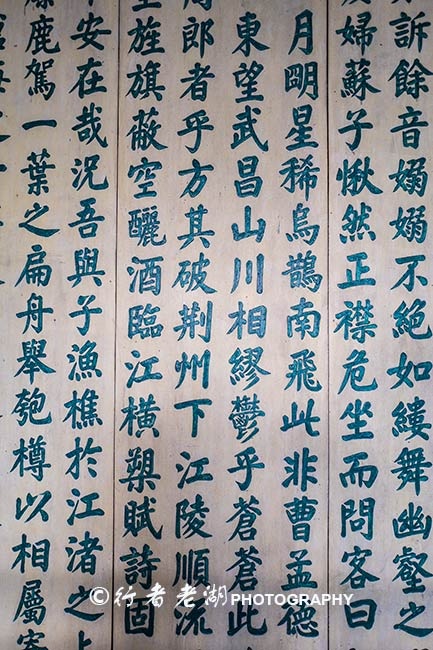 訴餘音嫋嫋不絕如縷舞幽壑之
婦蘇子愀然正襟危坐而問客曰
月明星稀烏鵲南飛此非曹孟德
東望武昌山川相繆鬱乎蒼蒼此
周郎者乎方其破荊州下江陵順流
旌旗蔽空釃酒臨江橫槊賦詩固
安在哉況吾與子漁樵於江渚之上
麋鹿駕一葉之扁舟舉匏樽以相屬寄
©行者老湖PHOTOGRAPHY